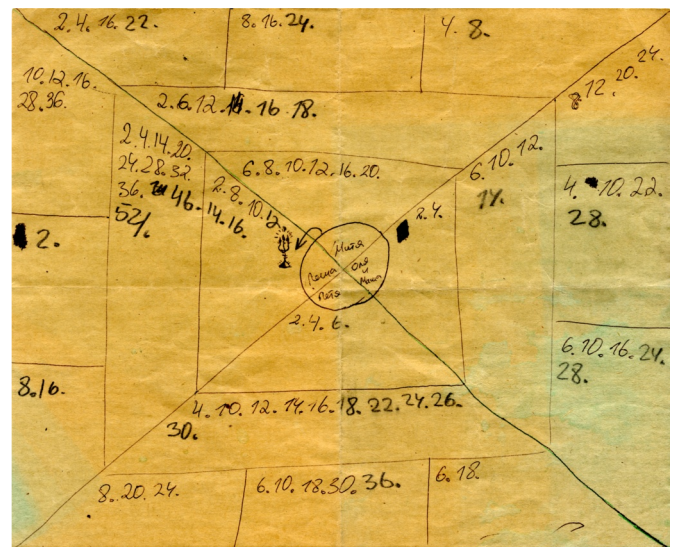 2. 4. 16. 22.
8. 16. 24.
4. 8.
10. 12. 16.
28. 36.
8. 12. 20. 24.
2. 6. 12. 14. 16. 18.
2. 4. 14. 20.
24. 28. 32.
36. 46.
52/.
6. 8. 10. 12. 16. 20.
6. 10. 12.
14.
2. 8. 10. 12.
14. 16.
4. 10. 22.
28.
2. 4.
2.
Митя
Леена
Оля
и
Маша
Петя
2. 4. 6.
6. 10. 16. 24.
28.
8. 16.
4. 10. 12. 14. 16. 18. 22. 24. 26.
30.
8. 20. 24.
6. 10. 18. 30. 36.
6. 18.